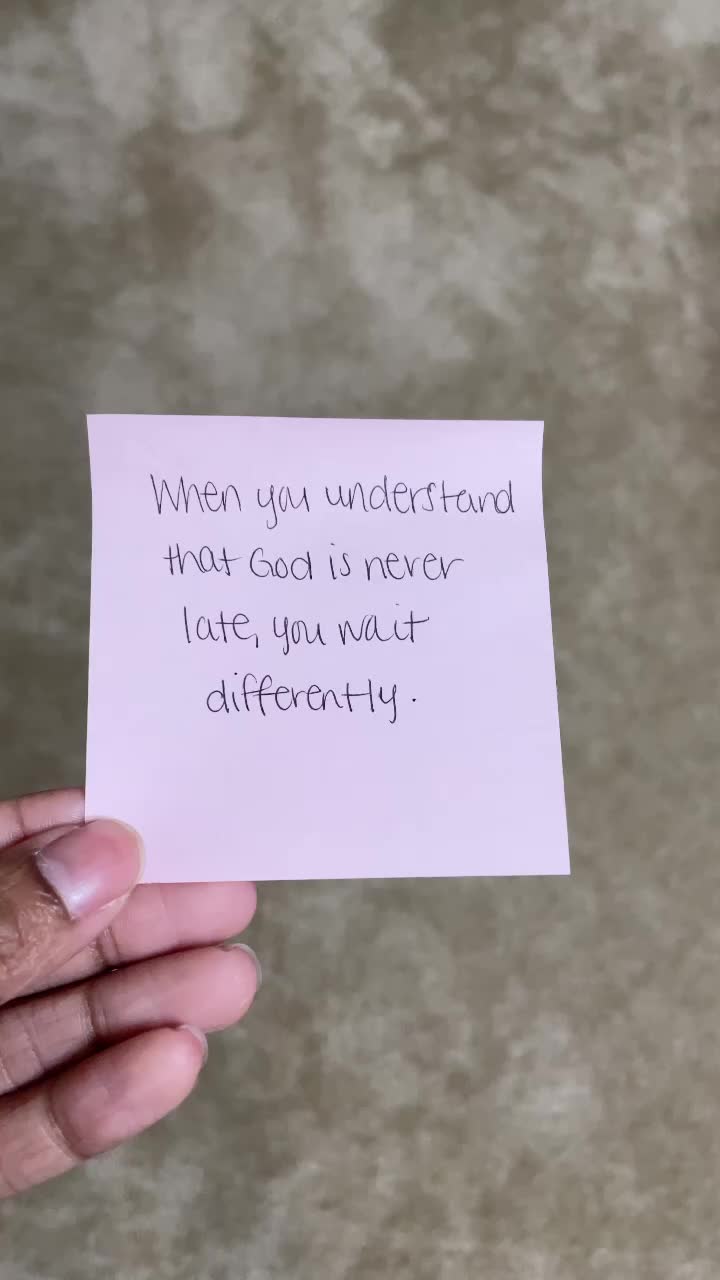 When you understand
that God is never
late, you wait
differently.